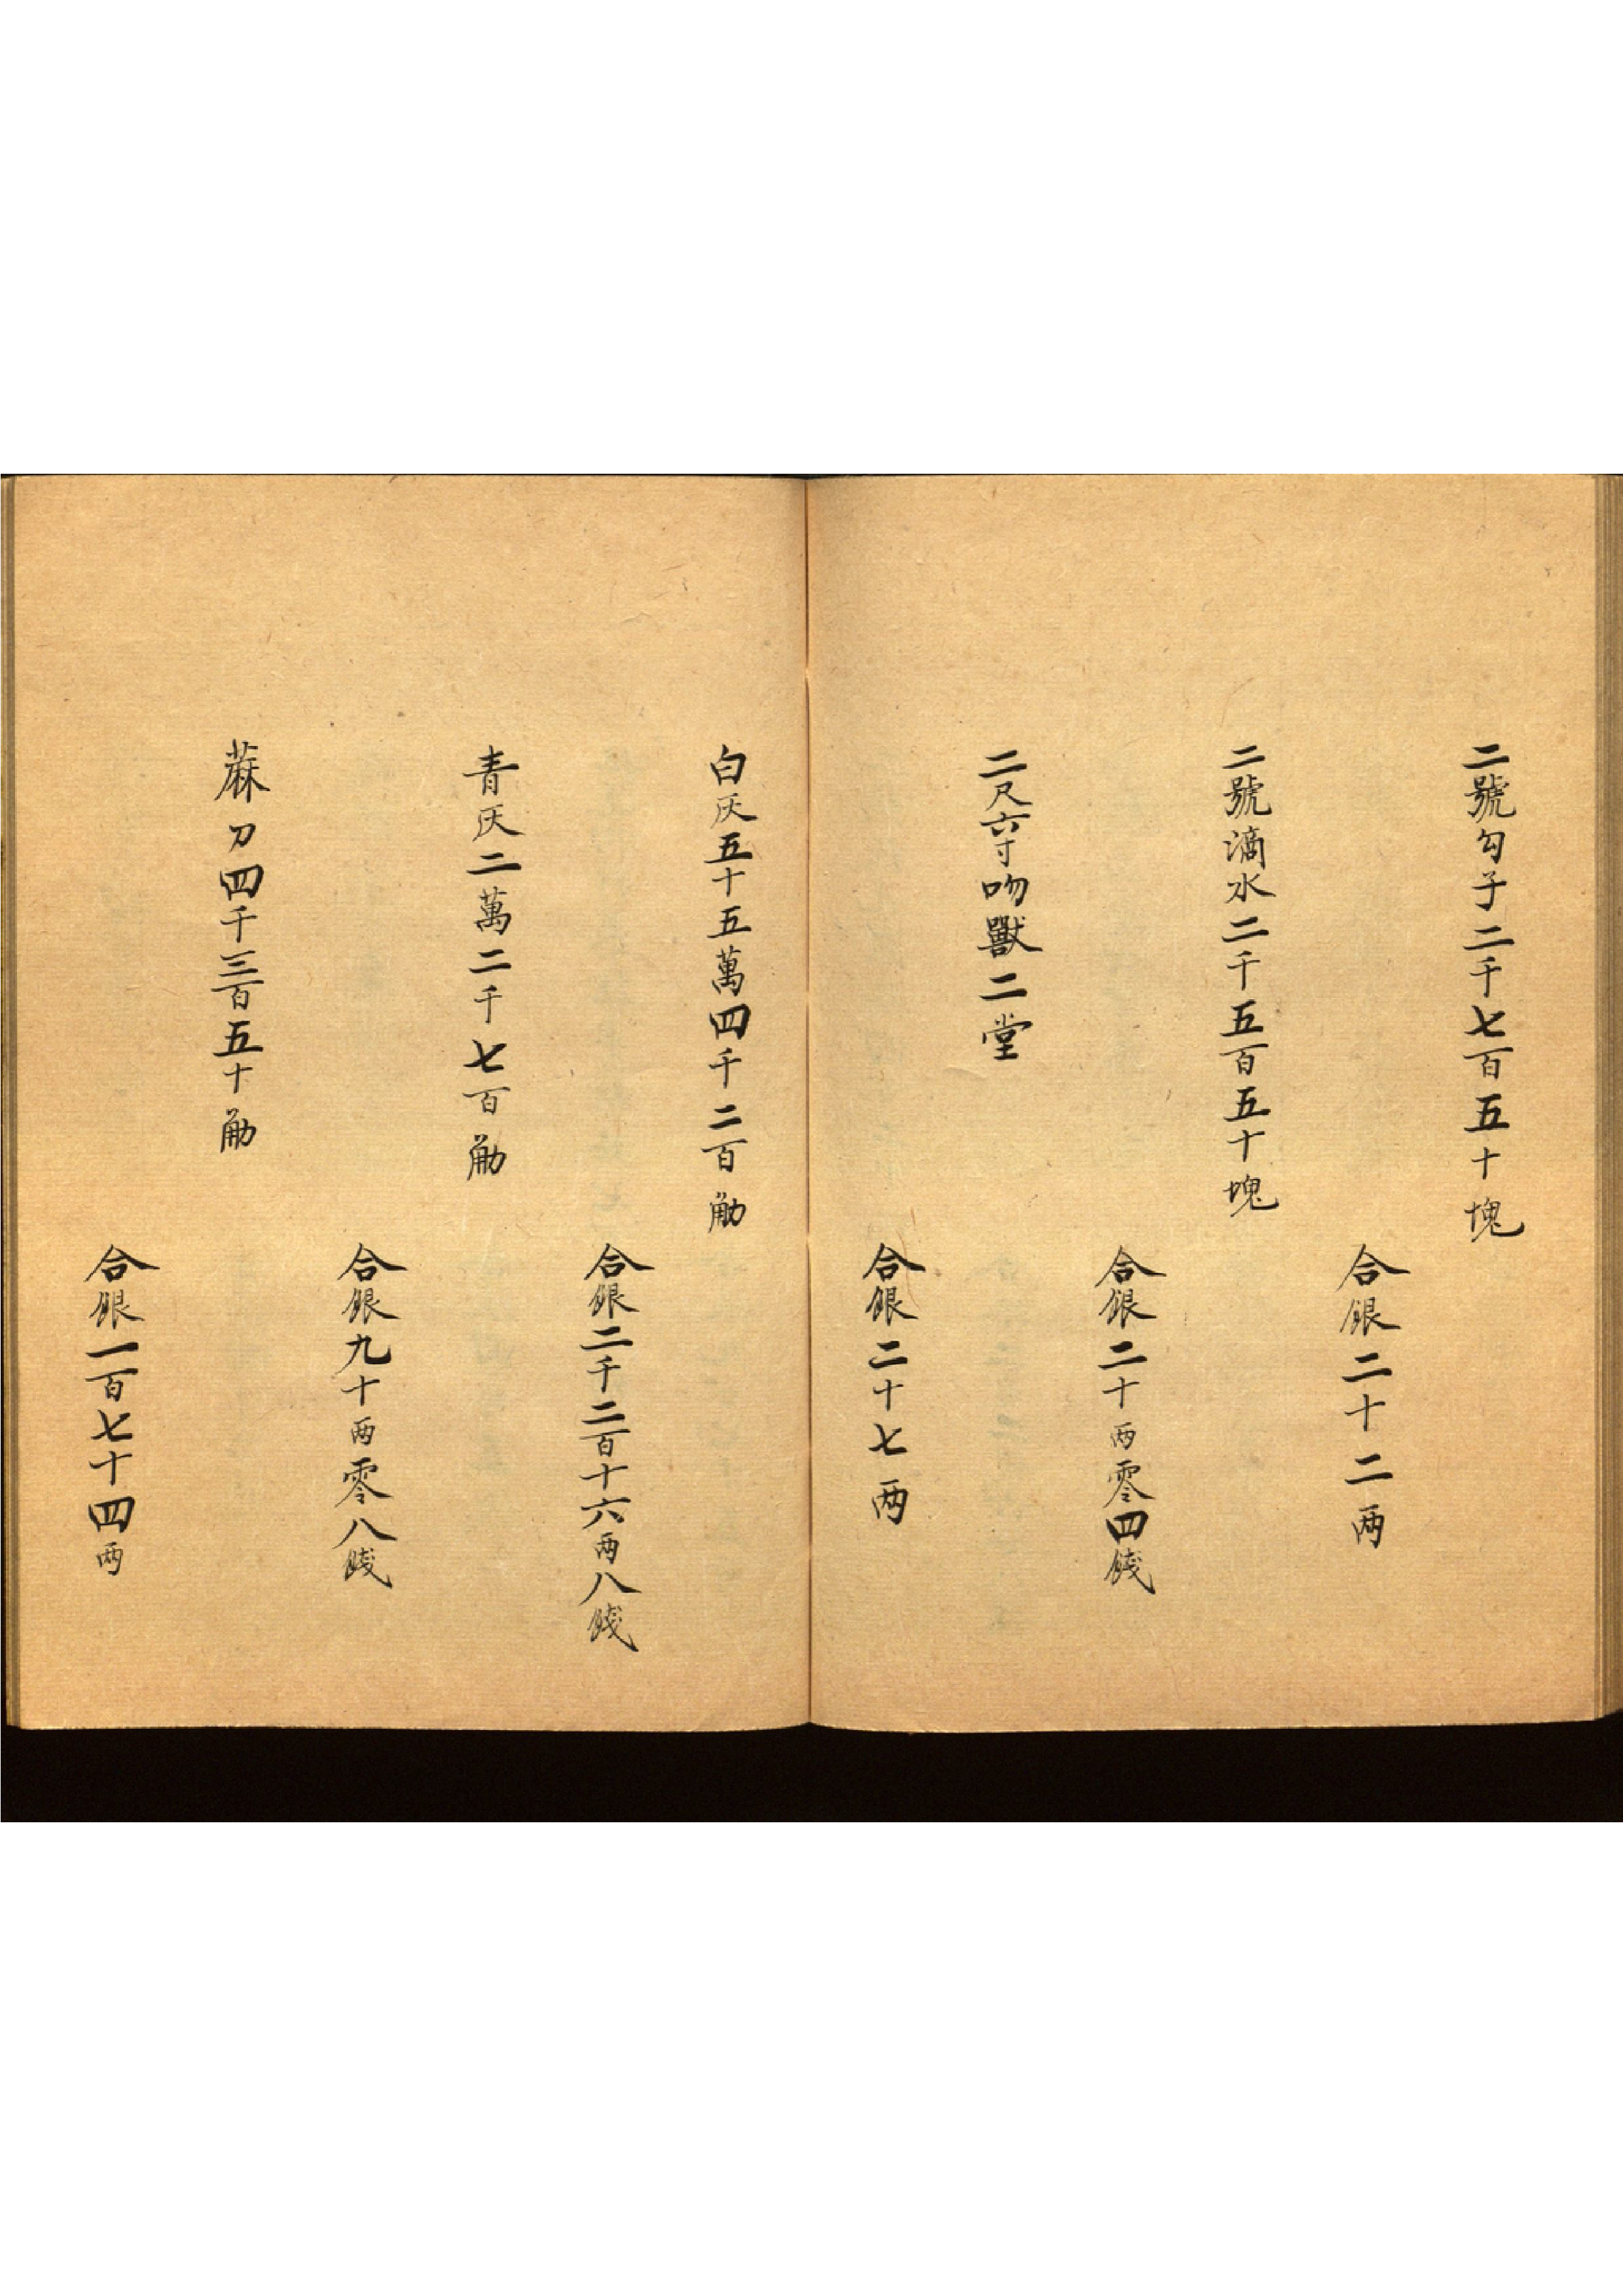 二號勾子二千七百五十塊
合銀二十二两
二號滴水二千五百五十塊
合銀二十两零四錢
二尺六寸吻獸二堂
合銀二十七两
白灰五十五萬四千二百觔
合銀二千二百十六两八錢
青灰二萬二千七百觔
合銀九十两零八錢
蔴刀四千三百五十觔
合銀一百七十四两